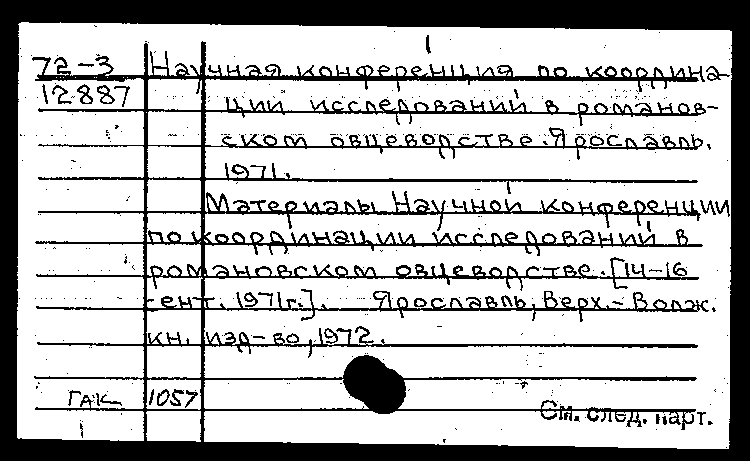 72-3 Научная конференция по координа-
12887 ции исследований в романов-
ском овцеводстве. Ярославль.
1971.
Материалы Научной конференции
по координации исследований в
романовском овцеводстве. [14-16
сент. 1971г.]. Ярославль, Верх.-Волж.
кн. изд-во, 1972.
ГАК 1057
См. след. карт.